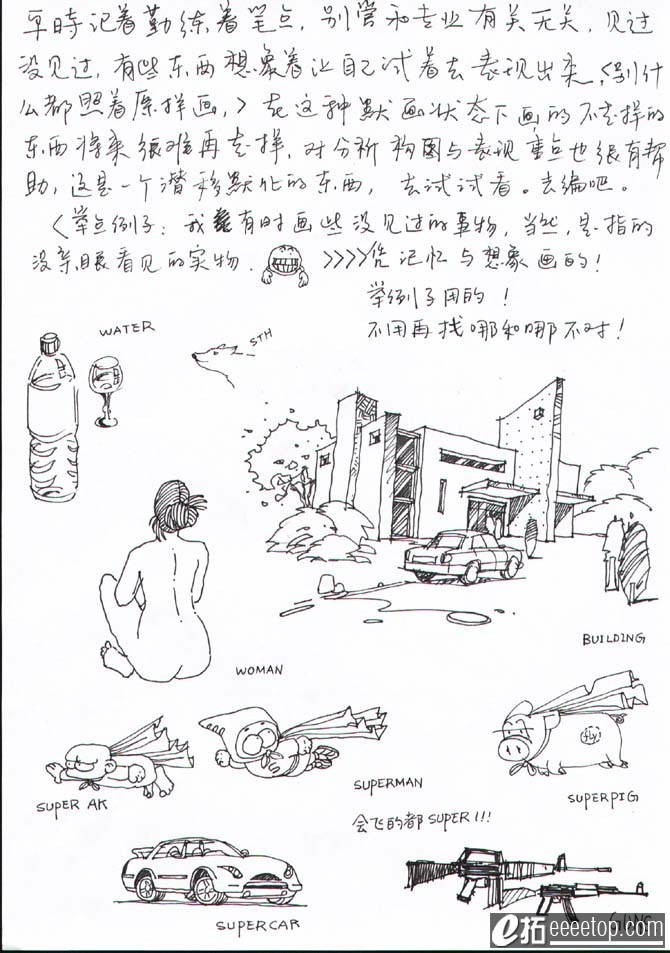 平時记着勤练着笔点，别管和专业有关无关，见过
没见过，有些东西想象着让自己试着去表现出来，<别什
么都照着原样画，>在这种默画状态下画的不走样的
东西将来很难再走样，对分析构图与表现重点也很有帮
助，这是一个潜移默化的东西，去试试看。去编吧。
<举点例子：我有时画些没见过的事物，当然，是指的
没亲眼看见的实物.
>>>>凭记忆与想象画的！
举例子用的！
不用再找哪和哪不对！
WATER
STH
BUILDING
WOMAN
SUPER AK
SUPERMAN
SUPERPIG
会飞的都SUPER!!!
SUPERCAR
GUNS
e拓 eeeetop.com